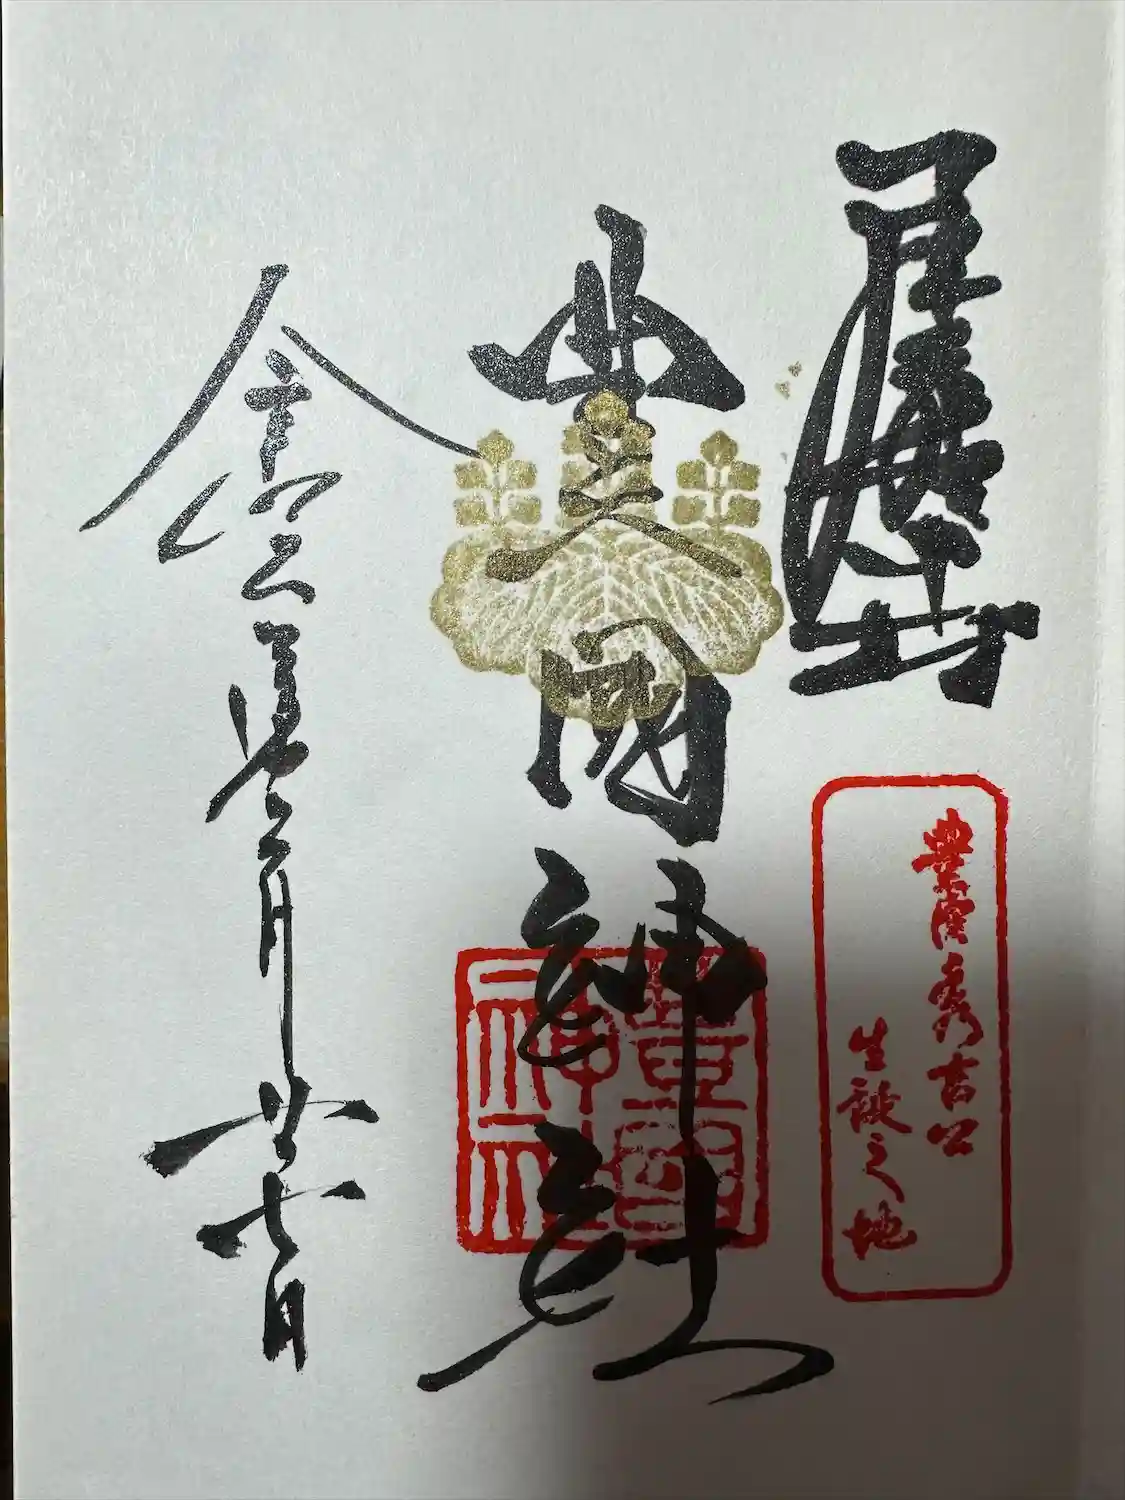 豊國神社
豊國神社
豊臣秀吉公
生誕之地
令和
年二月廿七日